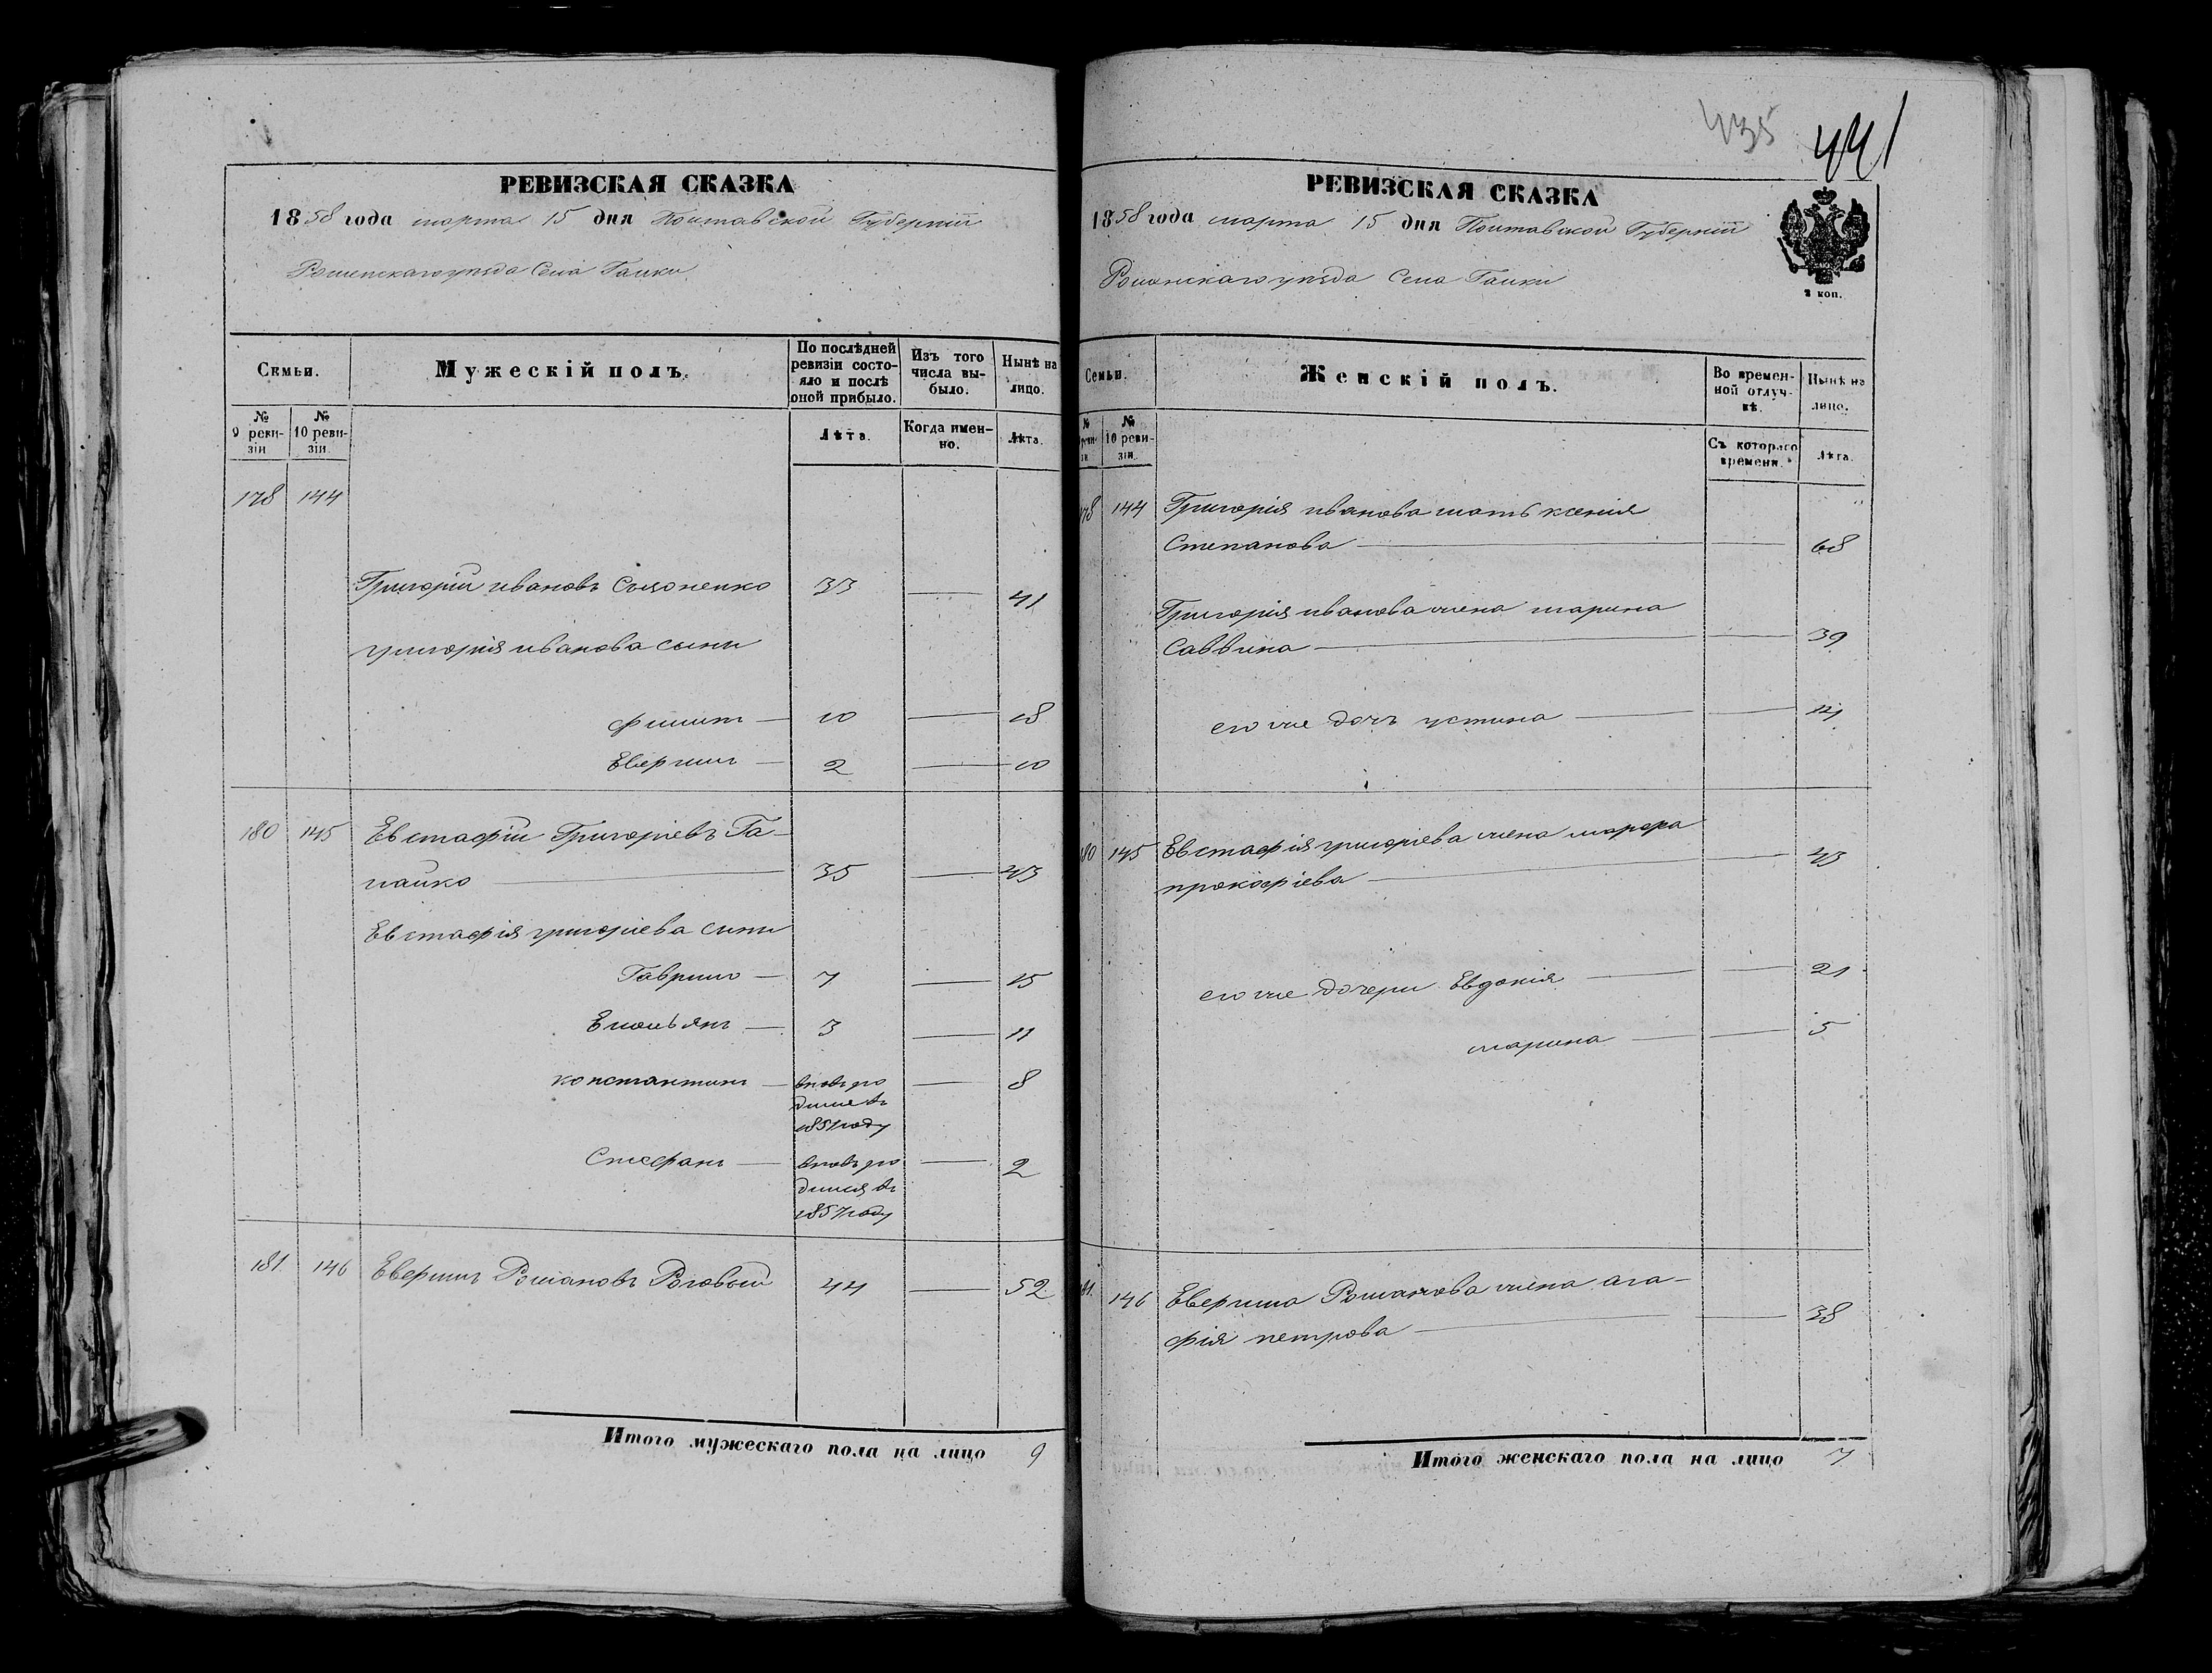 435 441
РЕВИЗСКАЯ СКАЗКА
1858 года марта 15 дня Полтавской Губерніи
Роменскаго уѣзда Села Галки
Семьи.
Мужескій полъ.
По послѣдней ревизіи состояло и послѣ оной прибыло.
Изъ того числа выбыло.
Нынѣ на лицо.
№ 9 ревизіи
№ 10 ревизіи.
Лѣта.
Когда именно.
Лѣта.
178 144
Григорій ивановъ 33 — 41
григорія иванова сыны
филипъ — 10 — 18
Евфимъ — 2 — 10
180 145 Евстафій Григоріевъ Га-
— 35 — 43
Евстафія григоріева сыны
Гаврило — 7 — 15
Емельянъ — 3 — 11
константинъ — вновь ро 8
дился въ
1851 году
Стефанъ — вновь ро — 2
дился въ
1857 году
181. 146 Евфимъ Романовъ Роговый 44 — 52
Итого мужескаго пола на лицо 9
РЕВИЗСКАЯ СКАЗКА
1858 года марта 15 дня Полтавской Губерніи
Роменскаго уѣзда Села Галки
2 коп.
Семьи.
Женскій полъ.
Во временной отлучкѣ.
Нынѣ на лицо.
№ 10 ревизіи.
Съ котораго времени.
Лѣта.
178 144 Григорія иванова мать ксенія
Степанова — 68
Григорія иванова жена марина
Саввина — 39
его же дочь устина — 14
180 145 Евстафія григоріева жена марфа
прокофіева — 43
его же дочери Евдокія — 21
марина — 5
181. 146 Евфима Романова жена ага-
фія петрова — 38
Итого женскаго пола на лицо 7